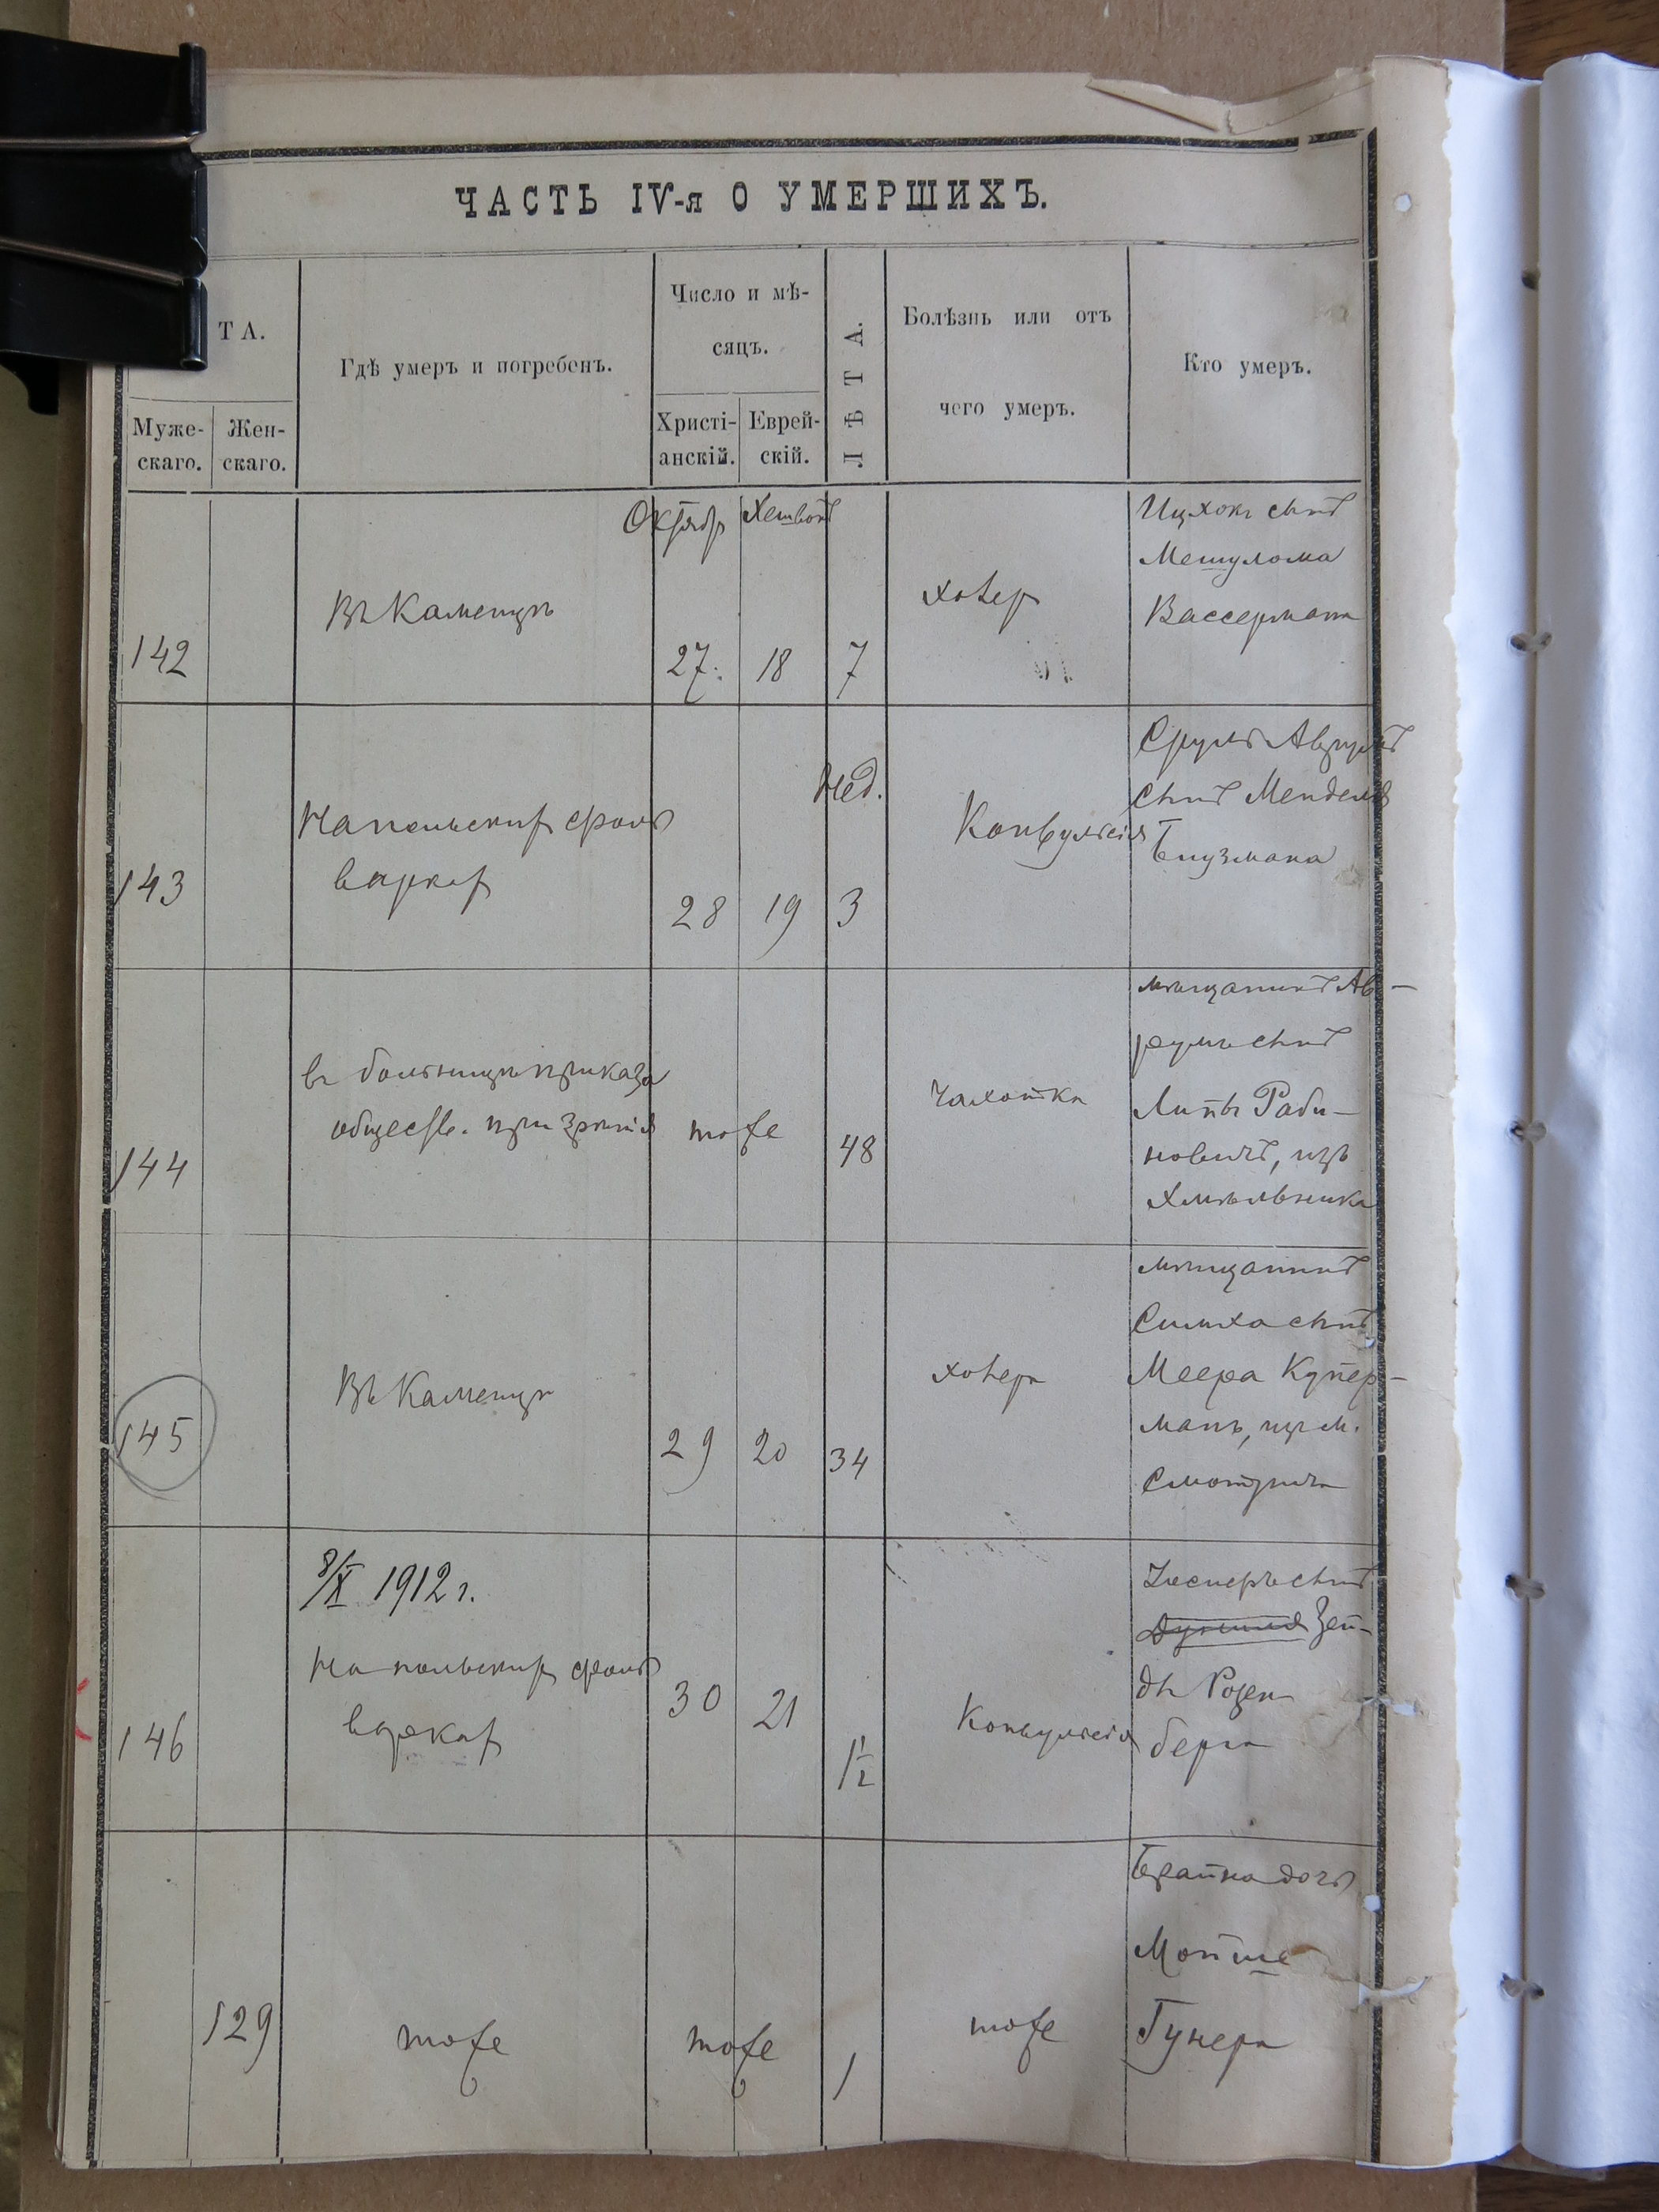 ЧАСТЬ IV-я О УМЕРШИХЪ.
ТА.
Муже-
скаго.
Жен-
скаго.
Гдѣ умеръ и погребенъ.
Число и мѣ-
сяцъ.
Христі-
анскій.
Еврей-
скій.
ЛѢТА.
Болѣзнь или отъ
чего умеръ.
Кто умеръ.
Октябр
142
Въ Каменцѣ
27.
18
7
Ицхокъ сынъ
Мешулома
Вассерман
143
фольв
28
19
Нед.
3
Конвульсія
Сруль
сынъ Менделя
144
въ больницѣ приказа
обществ. призрѣнія
тоже
48
Чахотка
мѣщанинъ Ав-
румъ сынъ
Липы Раби-
новичъ, изъ
Хмѣльника
145
Въ Каменцѣ
29
20
34
мѣщанинъ
Симха сынъ
Меера Купер-
манъ, изъ м.
Смотрича
8/X 1912 г.
146
На польских фольв
30
21
1 1/2
Конвульсія
сынъ
Зей-
ды Розен-
берга
129
тоже
тоже
1
тоже
Брайна дочь
Мойше
Гунера